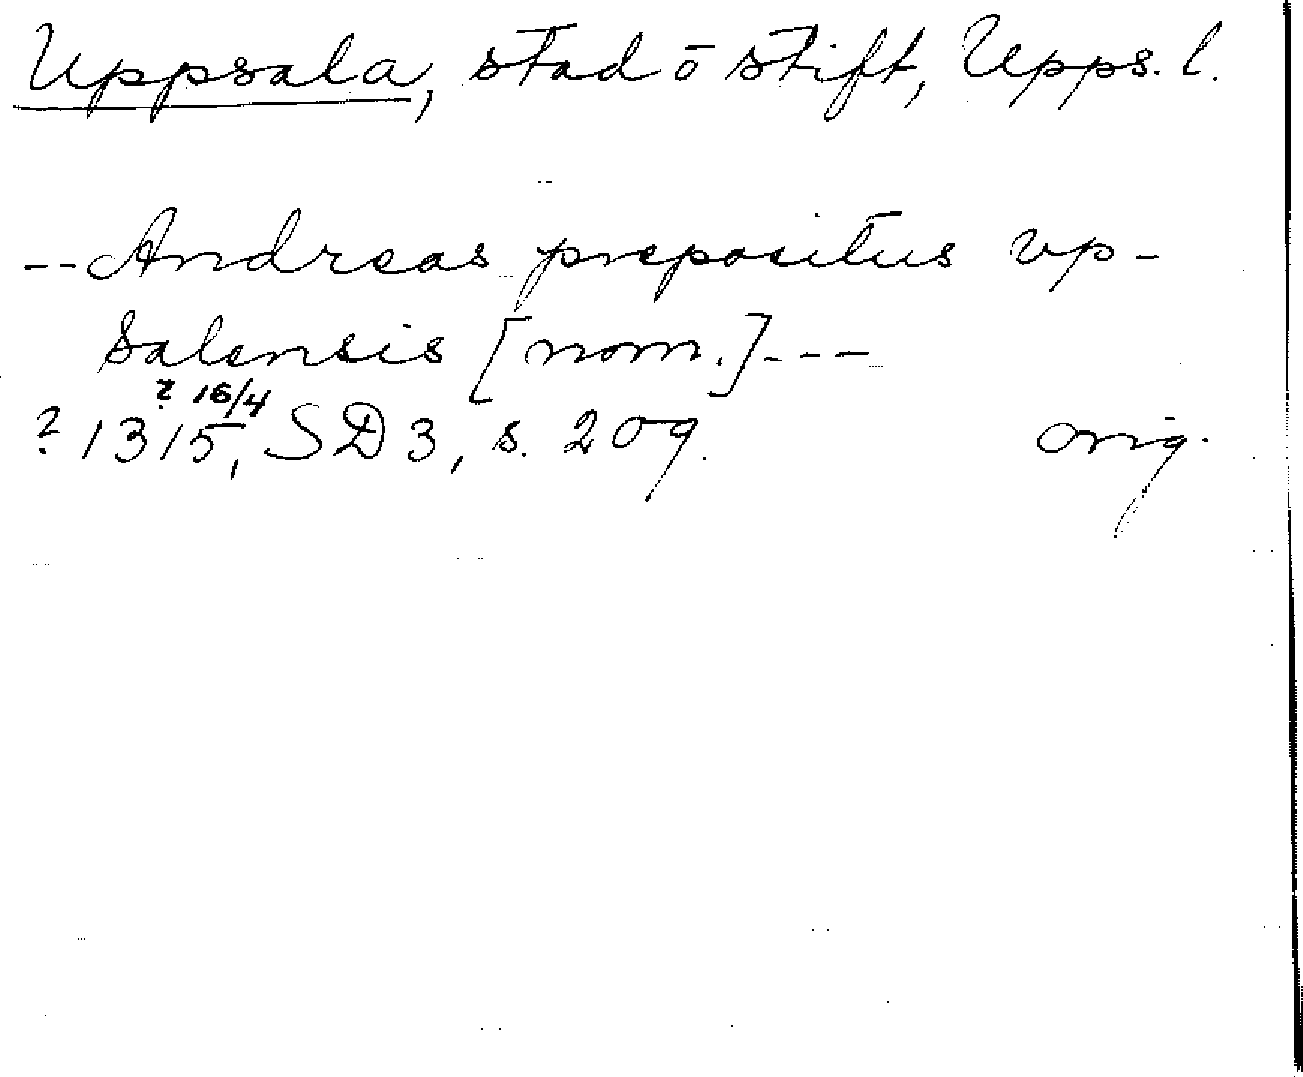 Uppsala, stad ō stift, Upps. l.
-- Andreas prepositus vp-
salensis [nom.] ---
? 16/4
? 1315, SD 3, s. 209. orig.